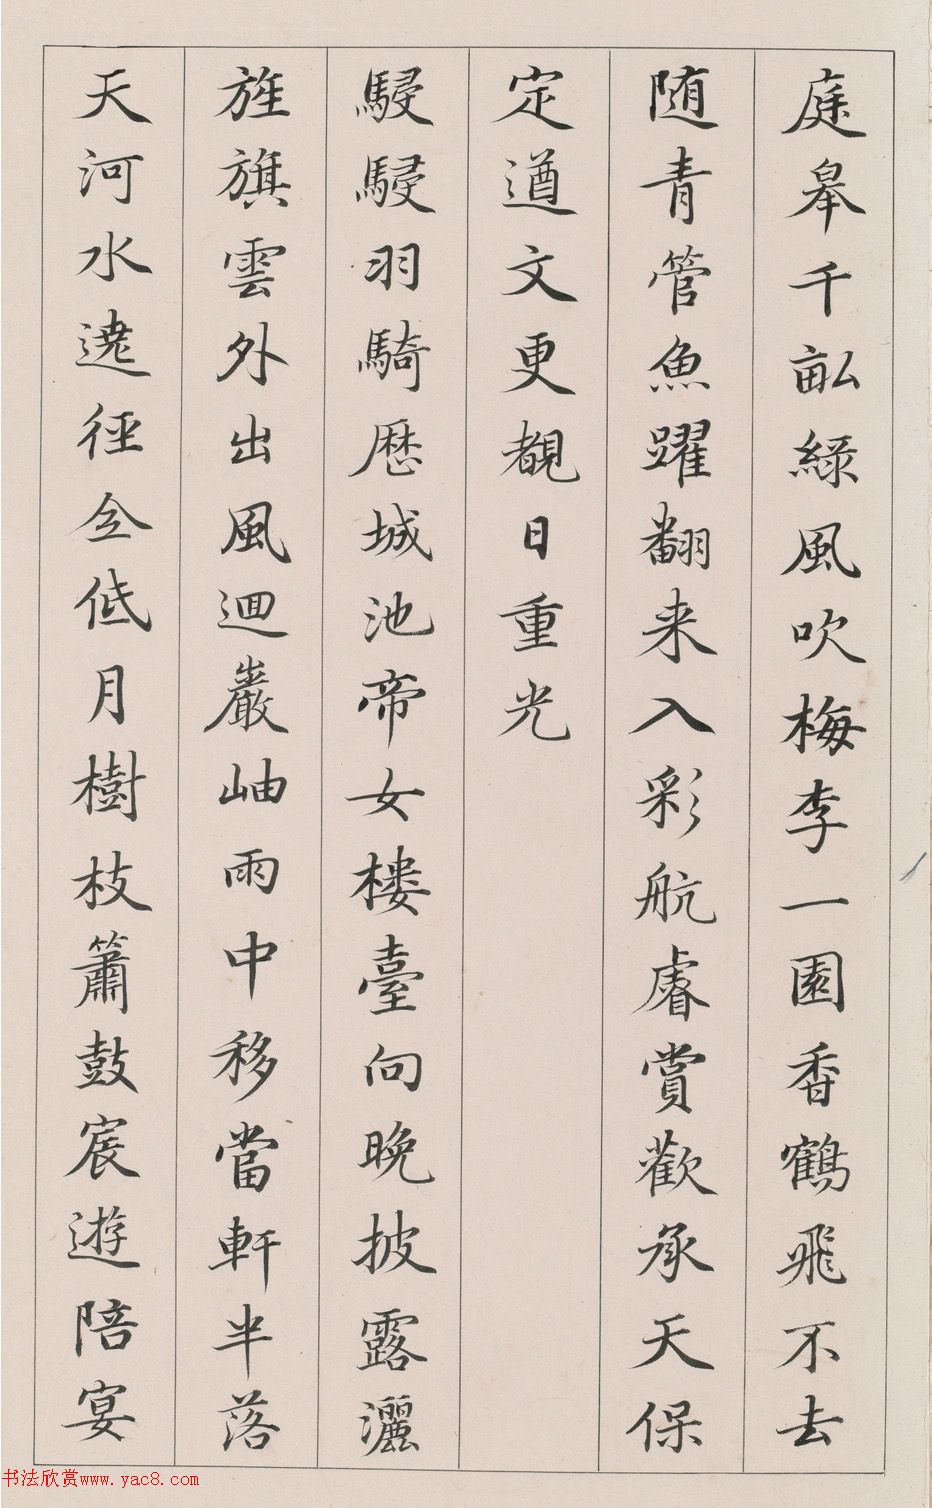 庭皋千畝綠風吹梅李一園香鶴飛不去
随青管魚躍翻来入彩航睿賞歡承天保
定遒文更覩日重光
駸駸羽騎歷城池帝女楼臺向晚披露灑
旌旗雲外出風迴巖岫雨中移當軒半落
天河水遶徑全低月樹枝簫鼓宸遊陪宴
书法欣赏www.yac8.com